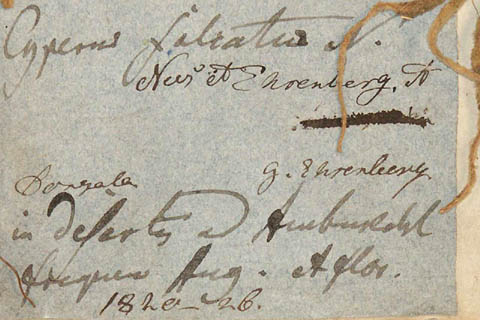 Cyperus falcatus N.
Nees et Ehrenberg.
Dongola g. Ehrenberg
in desertis ad Ambukohl
frequens Aug. Aflor.
1820-26.